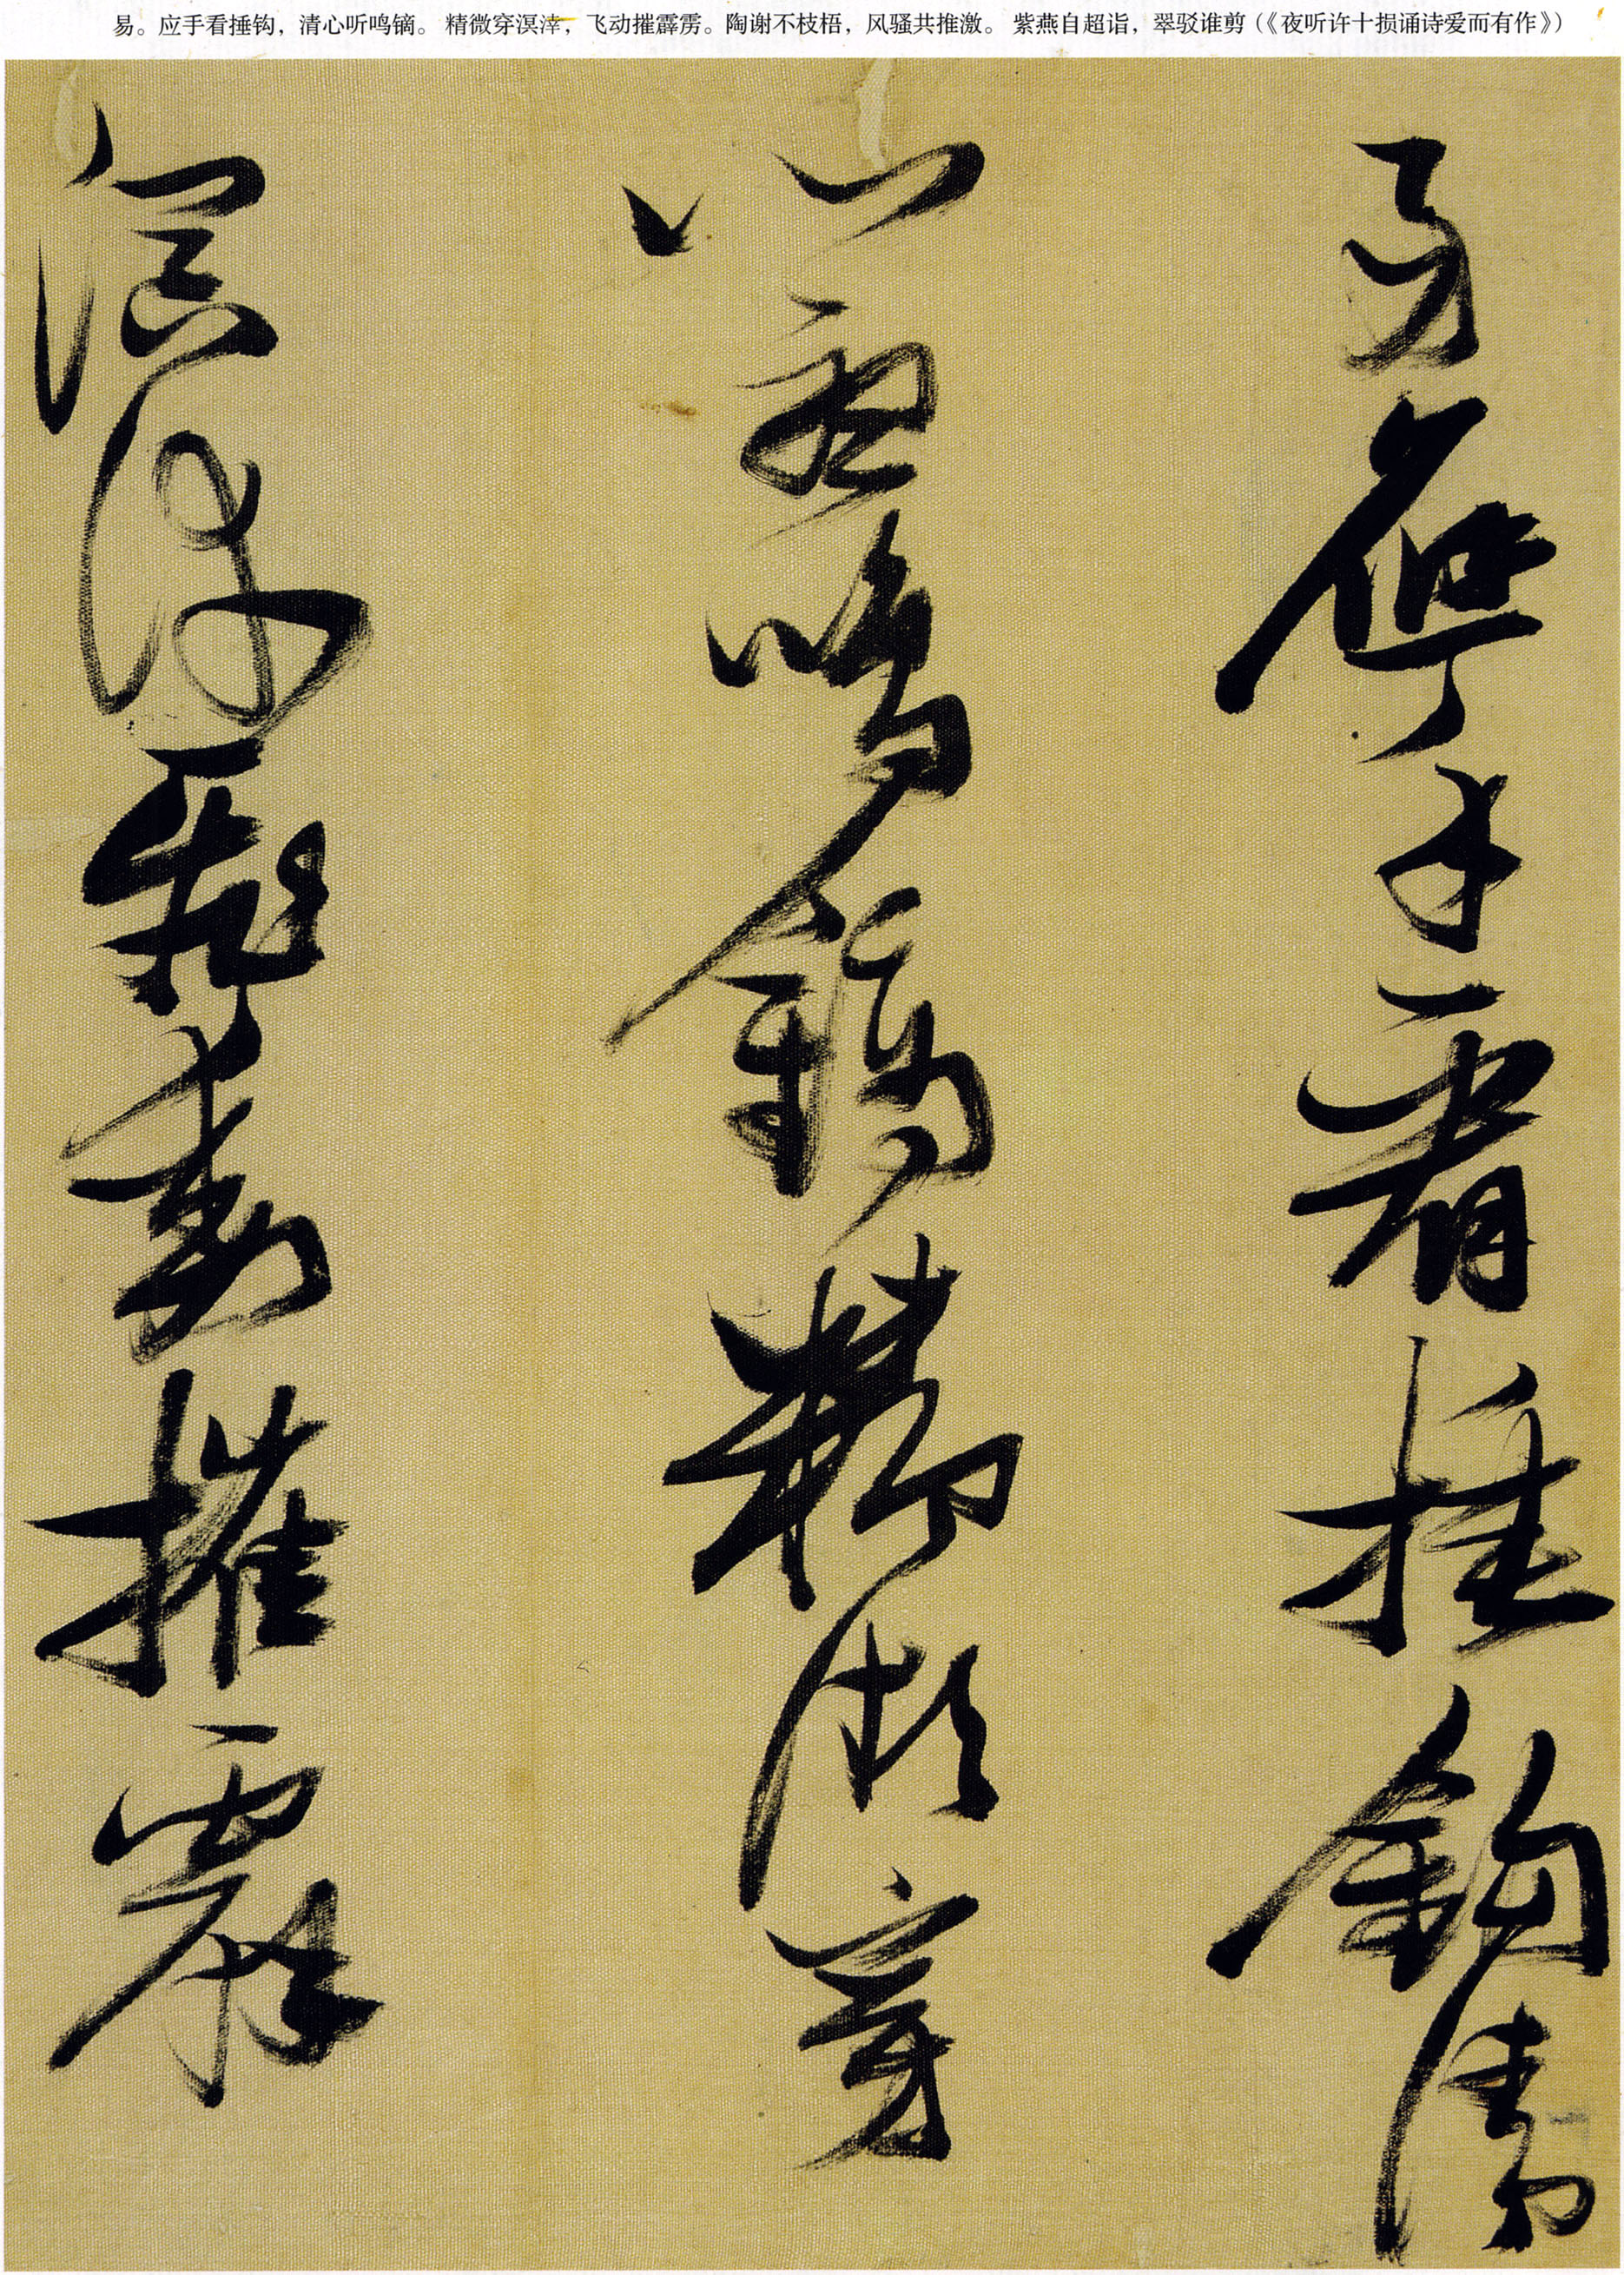 易。应手看捶钩,清心听鸣镝。 精微穿溟涬,飞动摧霹雳。陶谢不枝梧,风骚共推激。 紫燕自超诣,翠驳谁剪(《夜听许十损诵诗爱而有作》)
易應手看捶鉤清
心聽鳴鏑精微穿
溟涬飛動摧霹